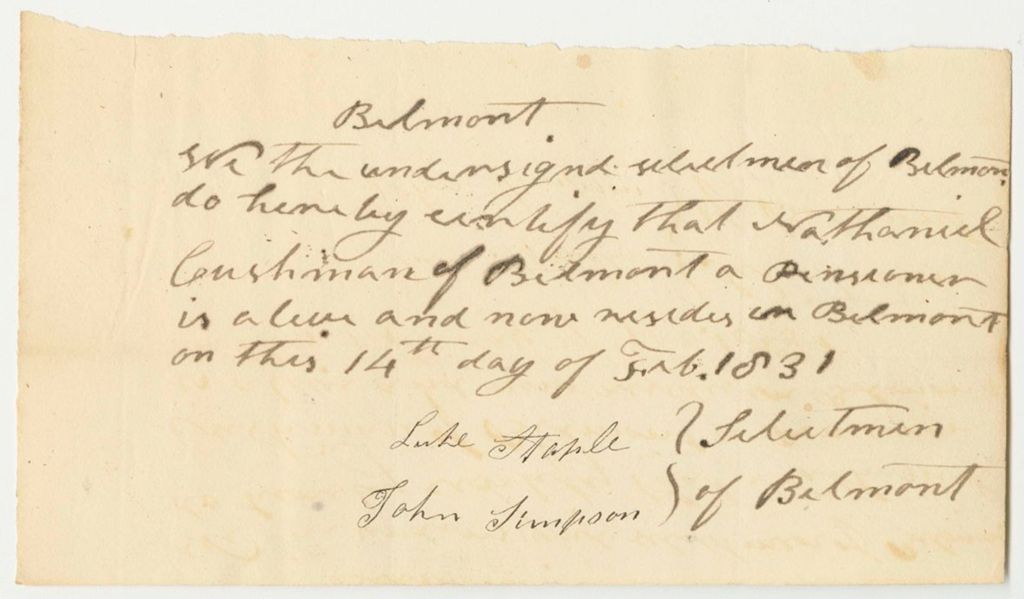 Belmont
We the undersignd selectmen of Belmont
do hereby certify that Nathaniel
Cushman of Belmont a Pensioner
is alive and now resides in Belmont
on this 14th day of Feb. 1831
Luke Staple } Selectmen
John Simpson } of Belmont